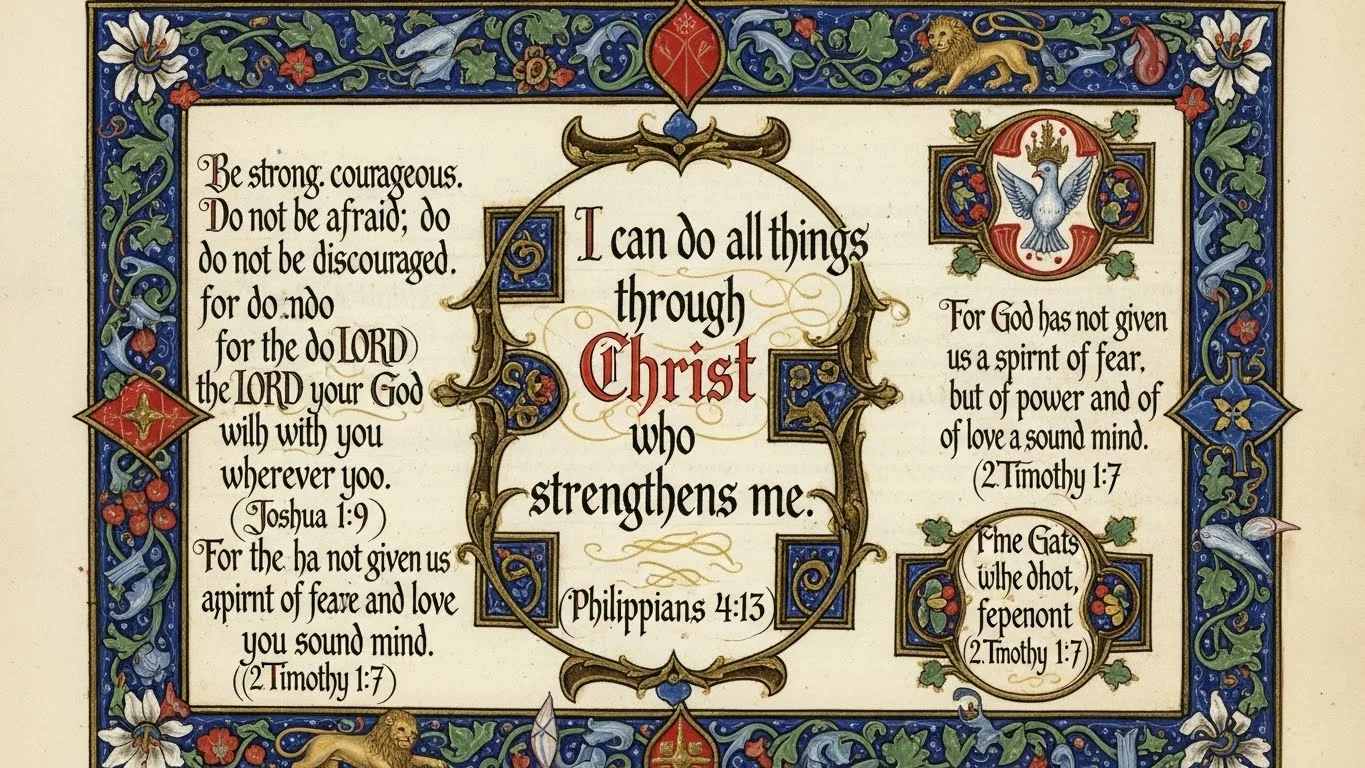 Be strong. courageous.
Do not be afraid; do
do not be discouraged.
for do ndo
for the do LORD)
the LORD your God
wilh with you
wherever yoo.
(Joshua 1:9)
For the ha not given us
apirnt of feaxe and love
you sound mind.
((2 Timothy 1:7)
I can do all things
through
Christ
who
strengthens me.
(Philippians 4:13)
For God has not given
us a spirnt of fear,
but of power and of
of love a sound mind.
(2 Timothy 1:7
Fme Gats
wlhe dhot,
fepenont
(2 Tmothy 1:7)